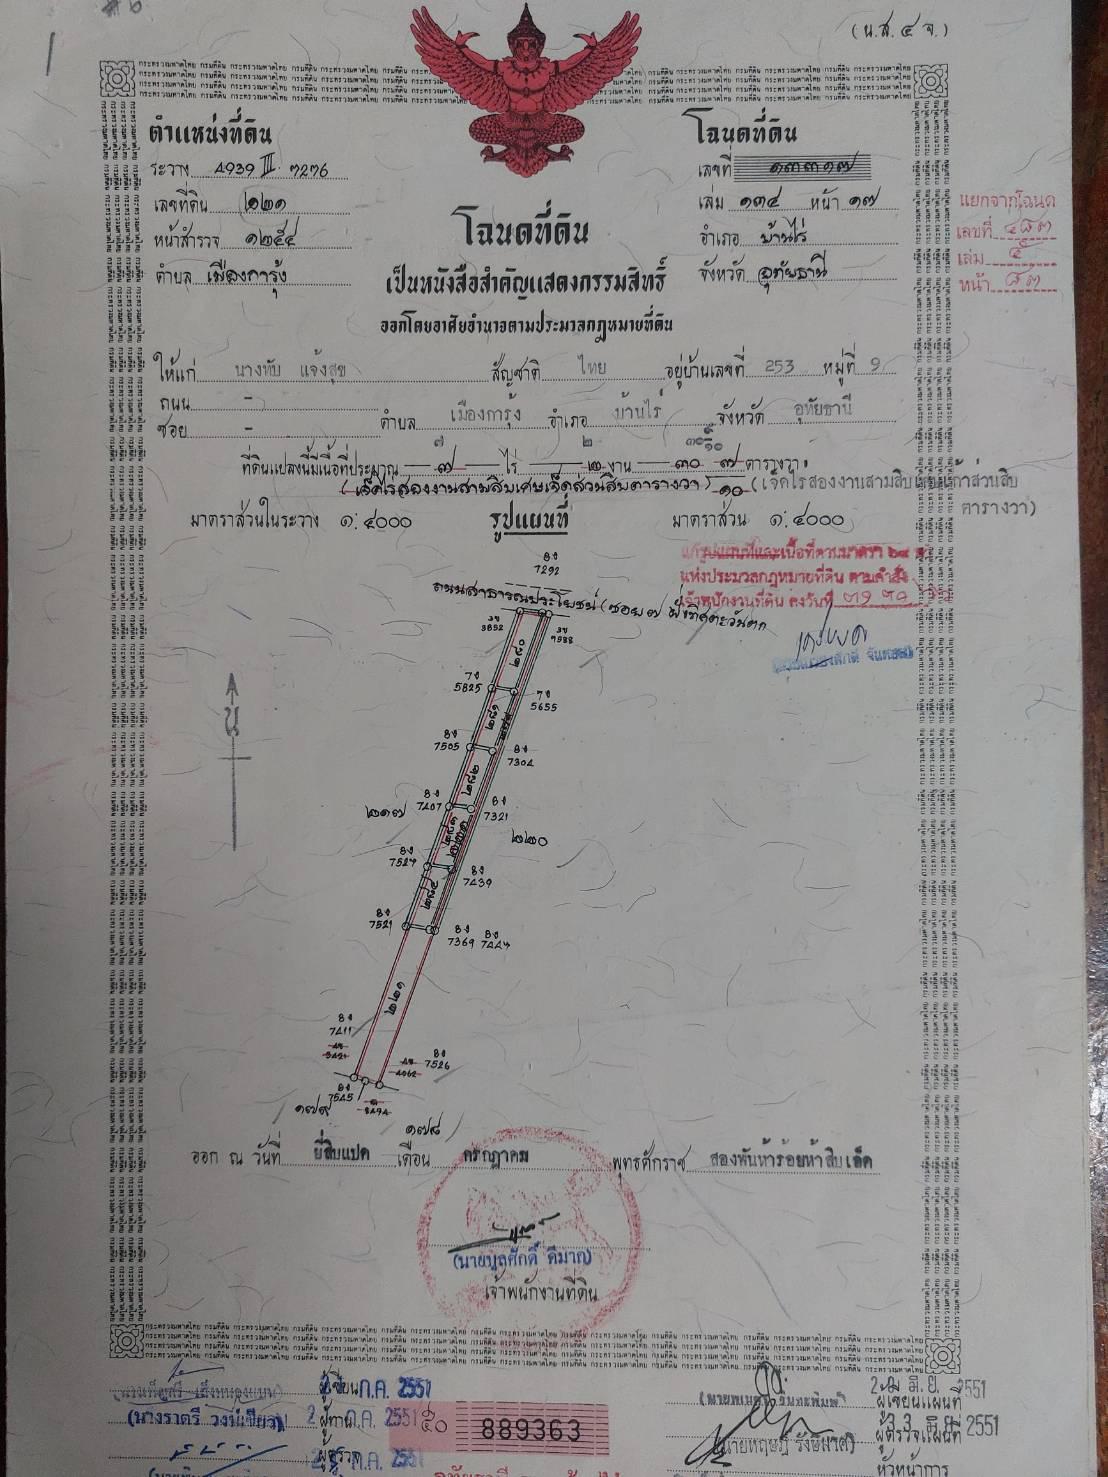 (น.ส. ๔ จ.)
ตำแหน่งที่ดิน
ระวาง 4939 III 7276
เลขที่ดิน ๑๒๑
หน้าสำรวจ ๑๒๕๔
ตำบล เมืองการุ้ง
โฉนดที่ดิน
เลขที่ ๑๓๓๑๗
เล่ม ๑๓๔ หน้า ๑๗
อำเภอ บ้านไร่
จังหวัด อุทัยธานี
แยกจากโฉนด
เลขที่ ๔๘๓
เล่ม ๕
หน้า ๘๓
โฉนดที่ดิน
เป็นหนังสือสำคัญแสดงกรรมสิทธิ์
ออกโดยอาศัยอำนาจตามประมวลกฎหมายที่ดิน
ให้แก่ นางทับ แจ้งสุข สัญชาติ ไทย อยู่บ้านเลขที่ 253 หมู่ที่ 9
ถนน - ซอย - ตำบล เมืองการุ้ง อำเภอ บ้านไร่ จังหวัด อุทัยธานี
๗ ๒ ๓๐ ๙/๑๐
ที่ดินแปลงนี้มีเนื้อที่ประมาณ ๗ ไร่ ๒ งาน ๓๐ ๗/๑๐ ตารางวา
(เจ็ดไร่สองงานสามสิบเศษเจ็ดส่วนสิบตารางวา) (เจ็ดไร่สองงานสามสิบเศษเก้าส่วนสิบ
ตารางวา)
มาตราส่วนในระวาง ๑:๔๐๐๐ รูปแผนที่ มาตราส่วน ๑:๔๐๐๐
แก้รูปแผนที่และเนื้อที่ตามมาตรา
แห่งประมวลกฎหมายที่ดิน ตามคำสั่ง
เจ้าพนักงานที่ดิน ลงวันที่
8ง
7292
ถนนสาธารณประโยชน์ (ซอย ๗ ฝั่งทิศตะวันตก
3852
7ง
5825
7ง
5655
8ง
7505
8ง
7304
8ง
7407
8ง
7321
๒๑๗
๒๒๐
8ง
7529
8ง
7439
8ง
7521
8ง
7369
8ง
7447
8ง
7411
8ง
7526
4062
8ง
7545
8494
๑๗๙
๑๗๘
น
ออก ณ วันที่ ยี่สิบแปด เดือน กรกฎาคม พุทธศักราช สองพันห้าร้อยห้าสิบเอ็ด
(นายบูลศักดิ์ ดีมาก)
เจ้าพนักงานที่ดิน
ผู้เขียน ก.ค. 2551
(นางราตรี วงษ์เขียว) ผู้ทาน ก.ค. 2551
ผู้ตรวจ ก.ค. 2551
๕๐
889363
มิ.ย. 2551
ผู้เขียนแผนที่
มิ.ย. 2551
ผู้ตรวจแผนที่
(นายหฤษฎ์ รังษีมาศ)
หัวหน้าการ